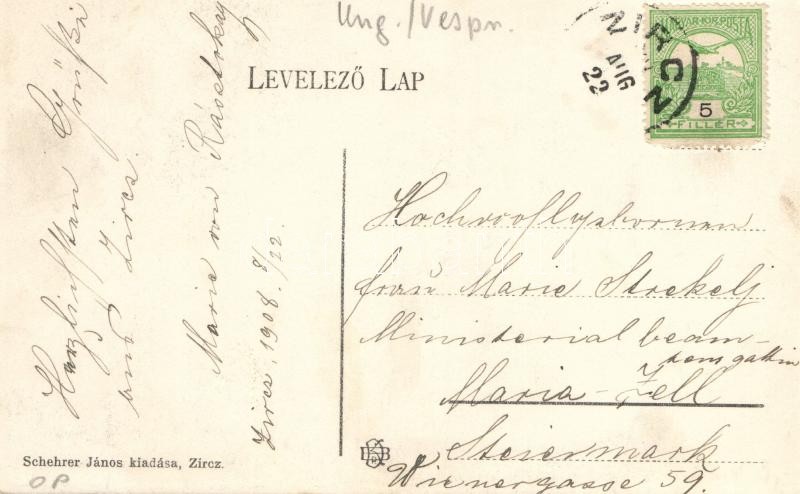 Ung./Vespr.
LEVELEZŐ LAP
ZIRCZ
AUG
22
MAGYAR KIR. POSTA
5
FILLÉR
Herzlichsten Gruß
aus Zircz.
Marie von
Zircz, 1908. 8/22.
Hochwohlgebornen
Frau Marie Strekelj
Ministerial beam-
tensgattin
Maria-Zell
Steiermark
Wienergasse 59.
Schehrer János kiadása, Zircz.
OP